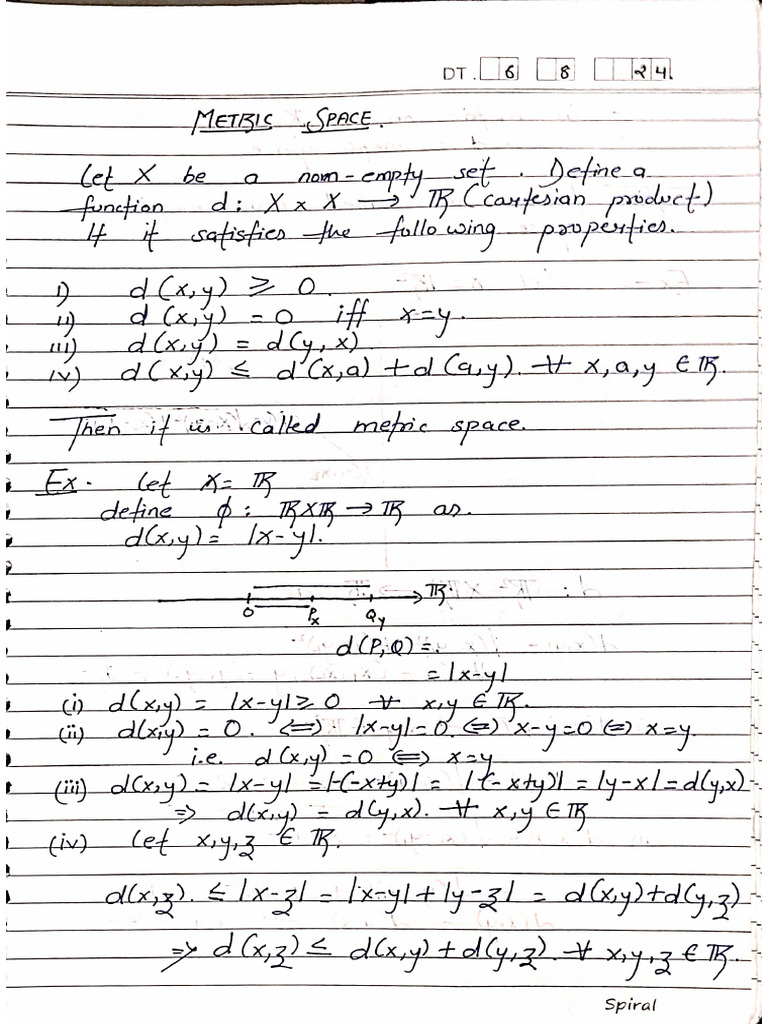 DT. 6 8 24
METRIC SPACE.
Let X be a nom-empty set. Define a
function d: X × X → ℝ (cartesian product)
If it satisfies the following properties.
i) d(x,y) ≥ 0.
ii) d(x,y) = 0 iff x=y.
iii) d(x,y) = d(y,x)
iv) d(x,y) ≤ d(x,a) + d(a,y). ∀ x,a,y ∈ ℝ.
Then it is called metric space.
Ex. Let X = ℝ
define ϕ: ℝ×ℝ → ℝ as.
d(x,y) = |x-y|.
ℝ.
O Px Qy
d(P,Q) =
= |x-y|
(i) d(x,y) = |x-y| ≥ 0 ∀ x,y ∈ ℝ.
(ii) d(x,y) = 0. ⟺ |x-y|=0. ⟺ x-y=0 ⟺ x=y.
i.e. d(x,y) = 0 ⟺ x=y
(iii) d(x,y) = |x-y| = |-(-x+y)| = |(-x+y)| = |y-x| = d(y,x)
⇒ d(x,y) = d(y,x). ∀ x,y ∈ ℝ
(iv) Let x,y,z ∈ ℝ.
d(x,z). ≤ |x-z| = |x-y| + |y-z| = d(x,y)+d(y,z)
⇒ d(x,z) ≤ d(x,y) + d(y,z). ∀ x,y,z ∈ ℝ.
Spiral